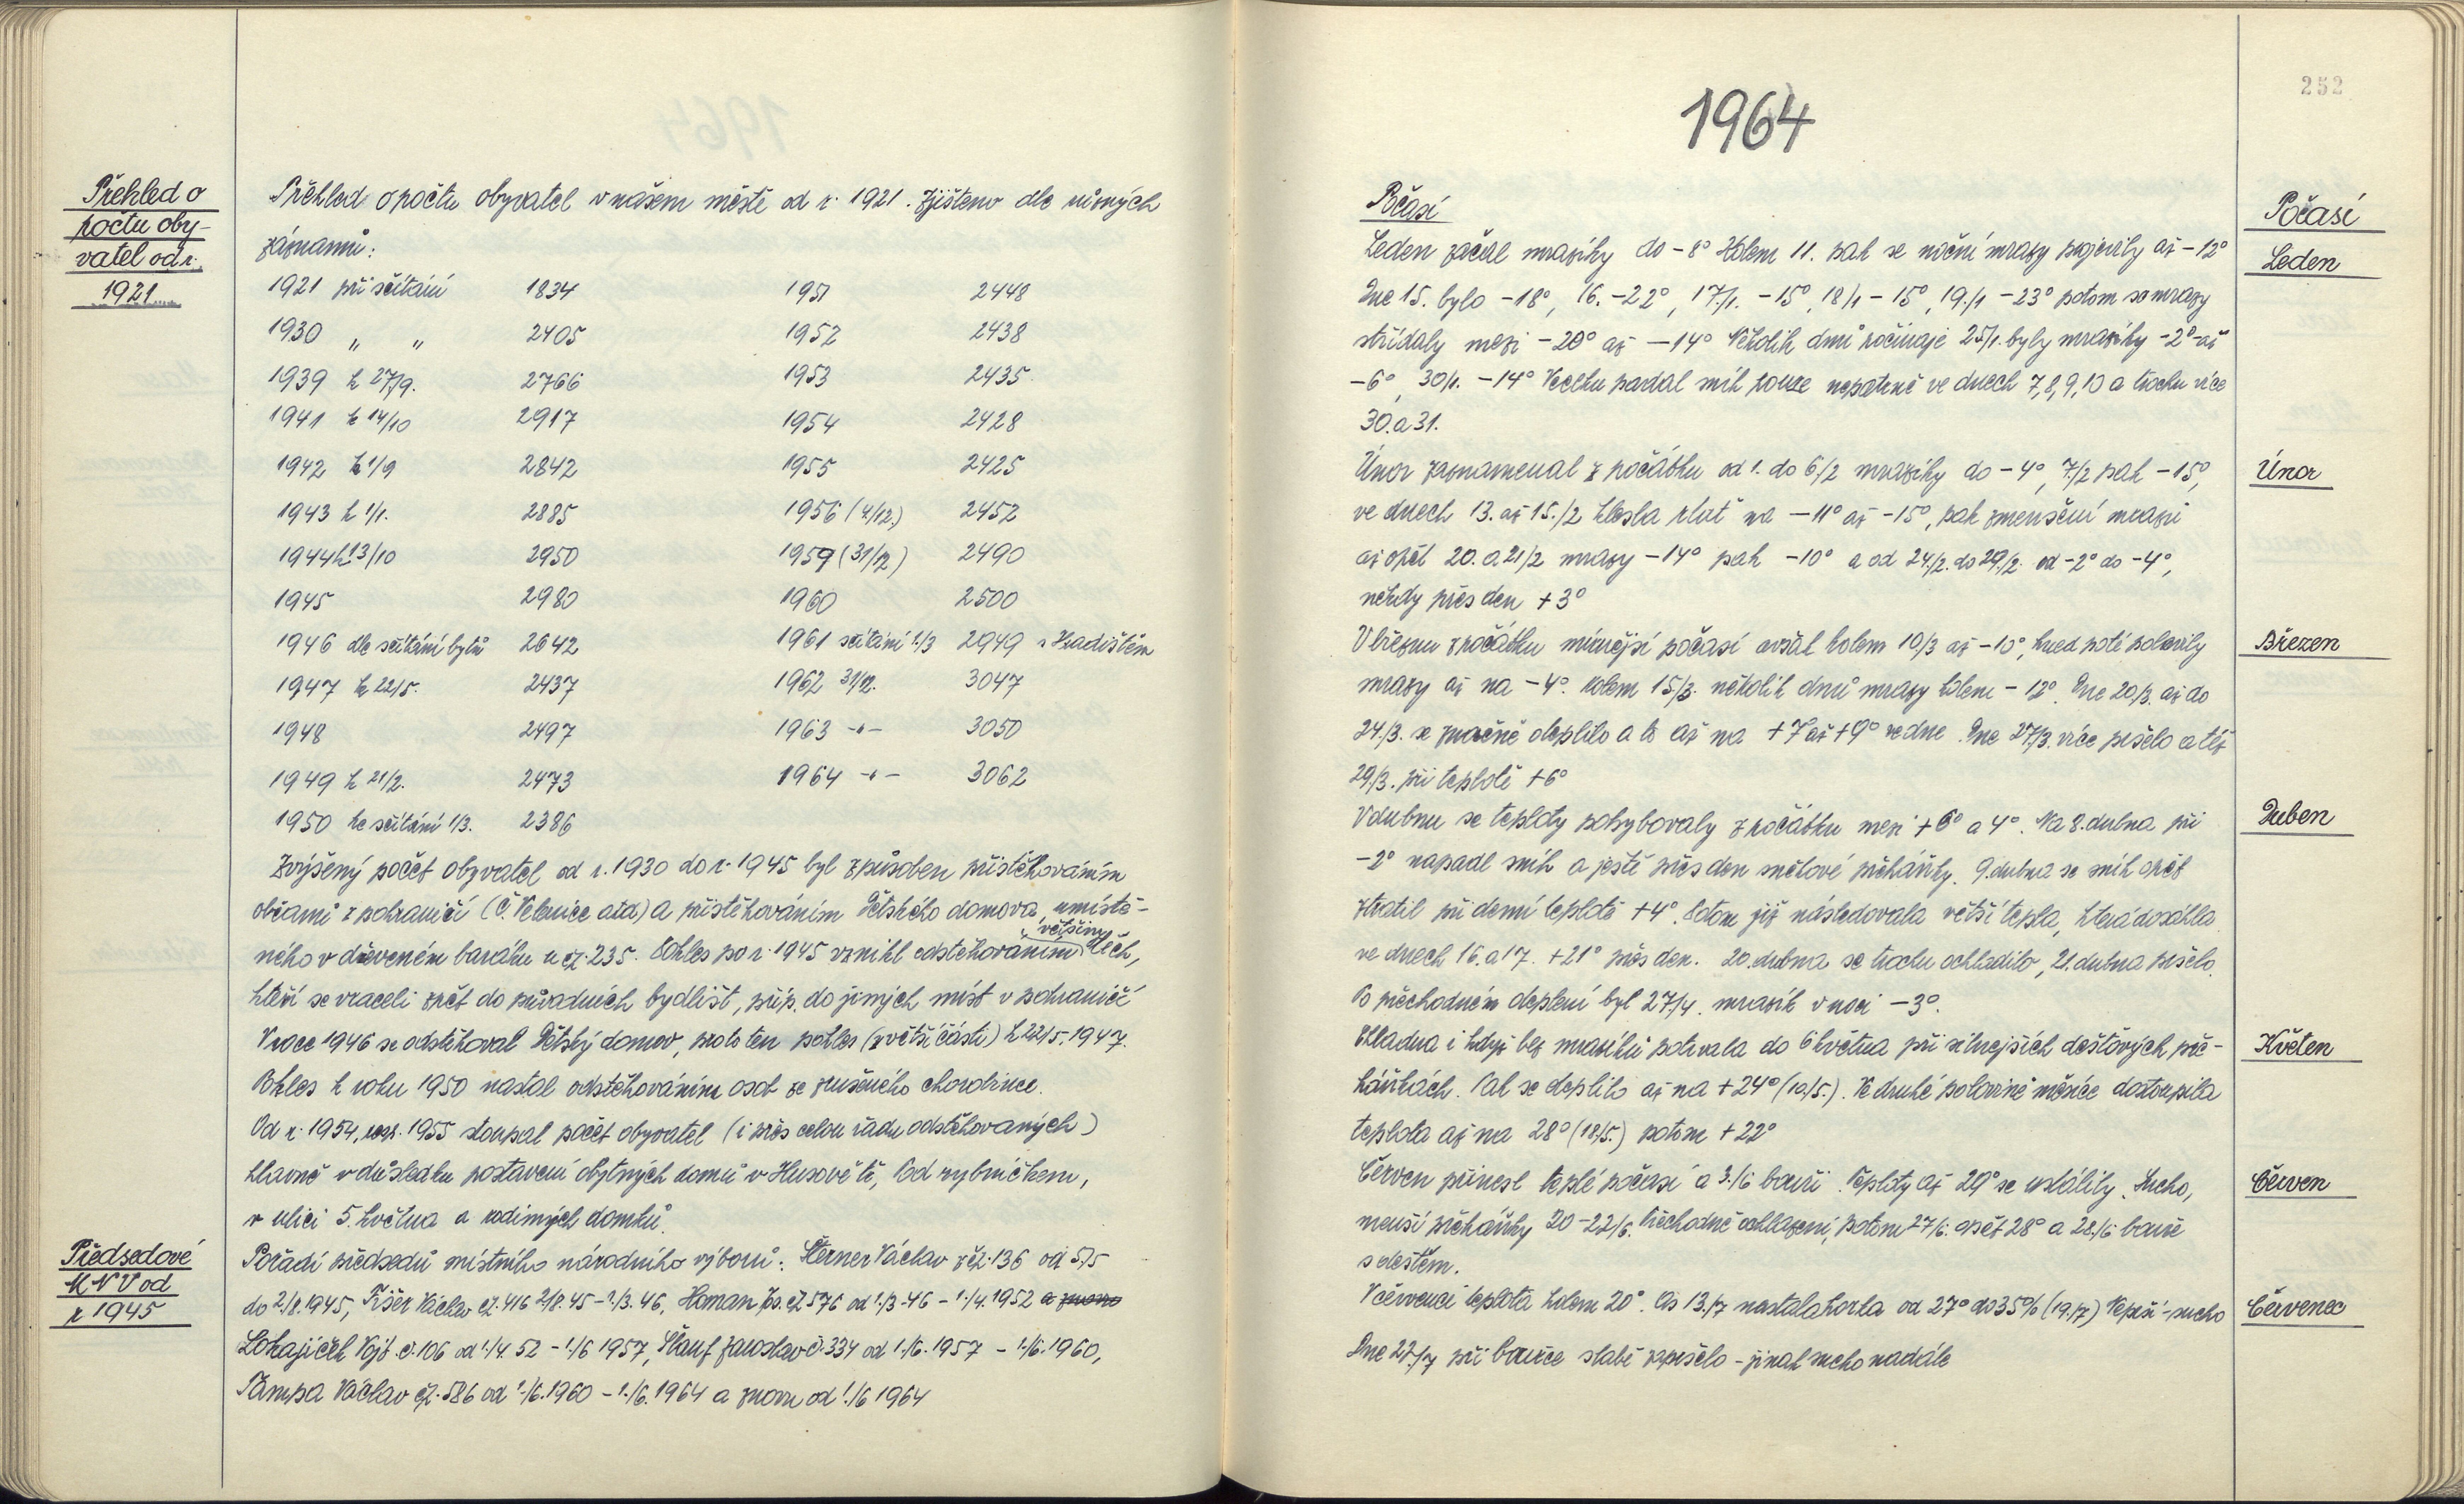 Přehled o
počtu oby-
vatel od r.
1921
Přehled o počtu obyvatel v našem městě od r. 1921. Zjištěno dle různých
záznamů:
1921 při sčítání 1834 1951 2448
1930 " " 2405 1952 2438
1939 k 27/9. 2766 1953 2435
1941 k 14/10 2917 1954 2428
1942 k 1/9 2842 1955 2425
1943 k 1/1. 2885 1956 (4/12.) 2452
1944 k 13/10 2950 1959 (31/12) 2490
1945 2980 1960 2500
1946 dle sčítání bytů 2642 1961 sčítání 1/3 2949 s Hradištěm
1947 k 22/5. 2437 1962 31/12. 3047
1948 2497 1963 -"- 3050
1949 k 21/2. 2473 1964 -"- 3062
1950 ke sčítání 1/3. 2386
Zvýšený počet obyvatel od r. 1930 do r. 1945 byl způsoben přistěhováním
občanů z pohraničí (Č. Velenice atd) a přistěhováním Dětského domova, umístě-
většiny
ného v dřevěném baráku u čp. 235. Pokles po r. 1945 vznikl odstěhováním těch,
kteří se vraceli zpět do původních bydlišť, příp. do jiných míst v pohraničí
V roce 1946 se odstěhoval Dětský domov, proto ten pokles (z větší části) k 22/5. 1947.
Pokles k roku 1950 nastal odstěhováním osob ze zrušeného chorobince.
Od r. 1954, resp. 1955 stoupal počet obyvatel (i přes celou řadu odstěhovaných)
hlavně v důsledku postavení obytných domů v Husově tř, Pod rybníčkem,
v ulici 5. května a rodinných domků.
Předsedové
MNV od
r 1945
Pořadí předsedů místního národního výboru: Šterner Václav z čp. 136 od 5/5
do 2/8. 1945, Fišer Václav čp. 416 2/8. 45 - 1/3. 46, Homan Jos. čp 576 od 1/3 - 46 - 1/4. 1952 a znovu
Lokajíček Vojt. č. 106 od 1/4. 52 - 1/6 1957, Šlauf Jaroslav č. 334 od 1./6. 1957 - 1./6. 1960,
Pampa Václav čp. 586 od 1./6. 1960 - 1./6. 1964 a znovu od 1./6 1964
252
1964
Počasí
Počasí
Leden
Leden začal mrazíky do -8° Kolem 11. pak se noční mrazy projevily až -12°
Dne 15. bylo -18°, 16. -22°, 17./1. -15°, 18/1 - 15°, 19./1 -23° potom se mrazy
střídaly mezi -20° až -14° Několik dnů počínaje 25/1. byly mrazíky -2° až
-6°, 30/1. -14° Vcelku padal sníh pouze nepatrně ve dnech 7, 8, 9, 10 a trochu více
30. a 31.
Únor
Únor zaznamenal z počátku od 1. do 6./2 mrazíky do -4°, 7./2 pak -15°,
ve dnech 13. až 15./2 klesla rtuť na -11° až -15°, pak zmenšení mrazů
až opět 20. a 21/2 mrazy -14° pak -10° a od 24./2. do 29./2. od -2° do -4°,
někdy přes den +3°
Březen
V březnu zpočátku mírnější počasí avšak kolem 10/3 až -10°, hned poté polevily
mrazy až na -4°. Kolem 15/3. několik dnů mrazy kolem - 12°. Dne 20/3. až do
24./3. se značně oteplilo a to až na +7 až +9° ve dne. Dne 27/3. více pršelo a též
29/3. při teplotě +6°
Duben
V dubnu se teploty pohybovaly zpočátku mezi +6° a 4°. Na 8. dubna při
-2° napadl sníh a ještě přes den sněhové přeháňky. 9. dubna se sníh opět
ztratil při denní teplotě +4°. Potom již následovala větší tepla, která dosáhla
ve dnech 16. a 17. +21° přes den. 20. dubna se trochu ochladilo, 21. dubna pršelo.
Po přechodném oteplení byl 27/4. mrazík v noci -3°.
Květen
Chladna i když bez mrazíků potrvala do 6 května při silnejších dešťových pře-
háňkách. Pak se oteplilo až na +24° (10./5.). Ve druhé polovině měsíce dostoupila
teplota až na 28° (18/5.) potom +22°
Červen
Červen přinesl teplé počasí a 3./6 bouři. Teploty až 29° se ustálily. Sucho,
menší přeháňky 20-22/6. Přechodné ochlazení, potom 27/6. opět 28° a 28./6 bouře
s deštěm.
Červenec
V červenci teplota kolem 20°. Až 13./7 nastala horka od 27° do 35° (19./7) sucho
Dne 22./7 při bouřce slabě zapršelo - jinak sucho nadále